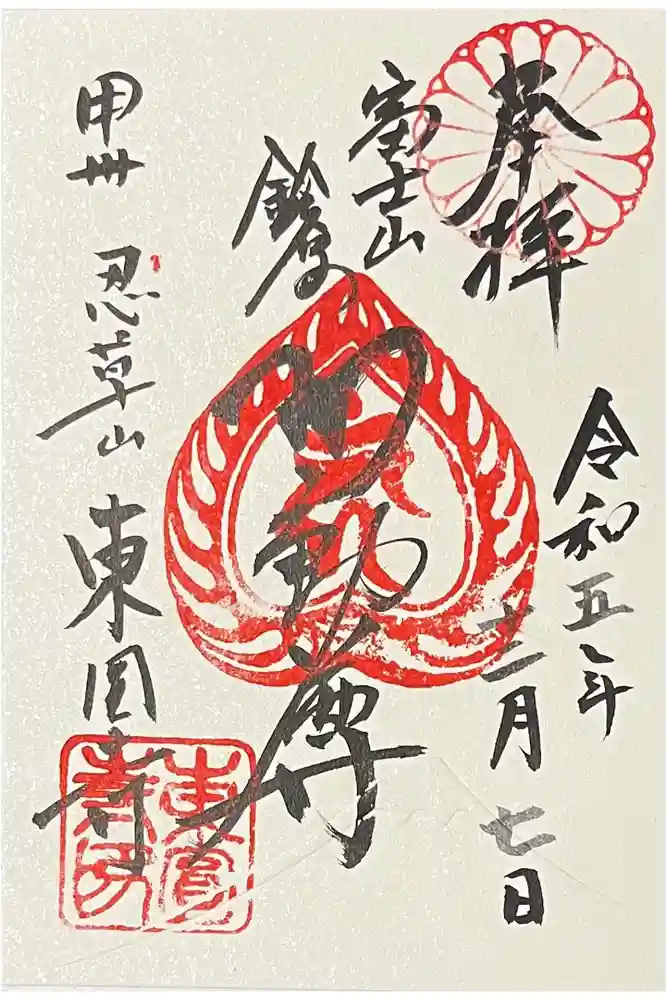 奉拝
令和五年
二月七日
富士山
鈴原
不動尊
甲州 忍草山 東圓寺